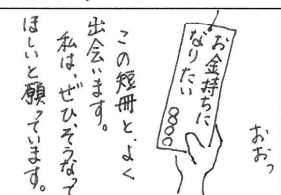 おおっ
お金持ちに
なりたい
この短冊と、よく
出会います。
私は、ぜひそうなって
ほしいと願っています。